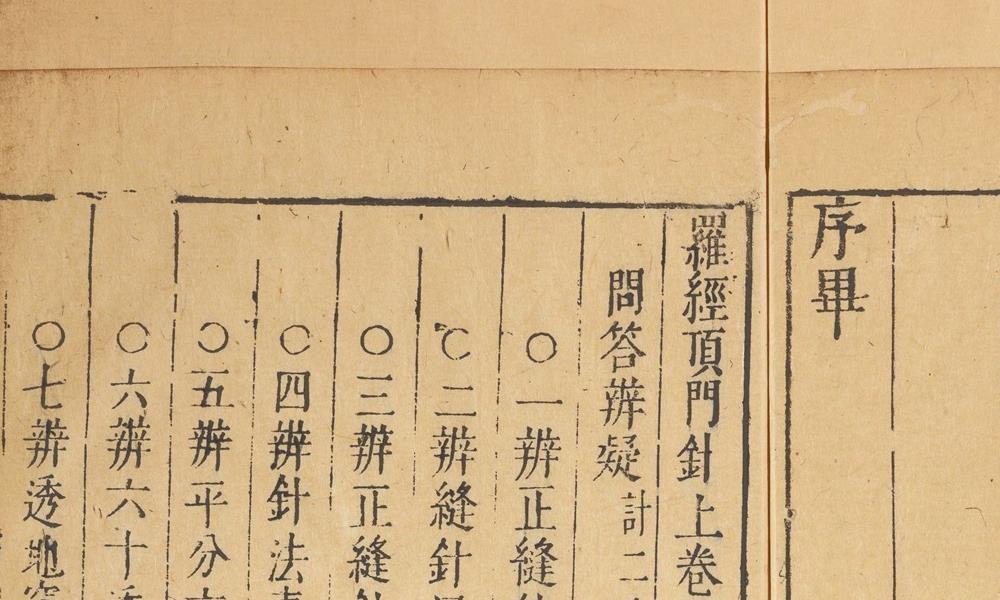 序畢
羅經頂門針上卷
問答辨疑計二
○一辨正縫
○二辨縫針
○三辨正縫
○四辨針法
○五辨平分
○六辨六十
○七辨透地